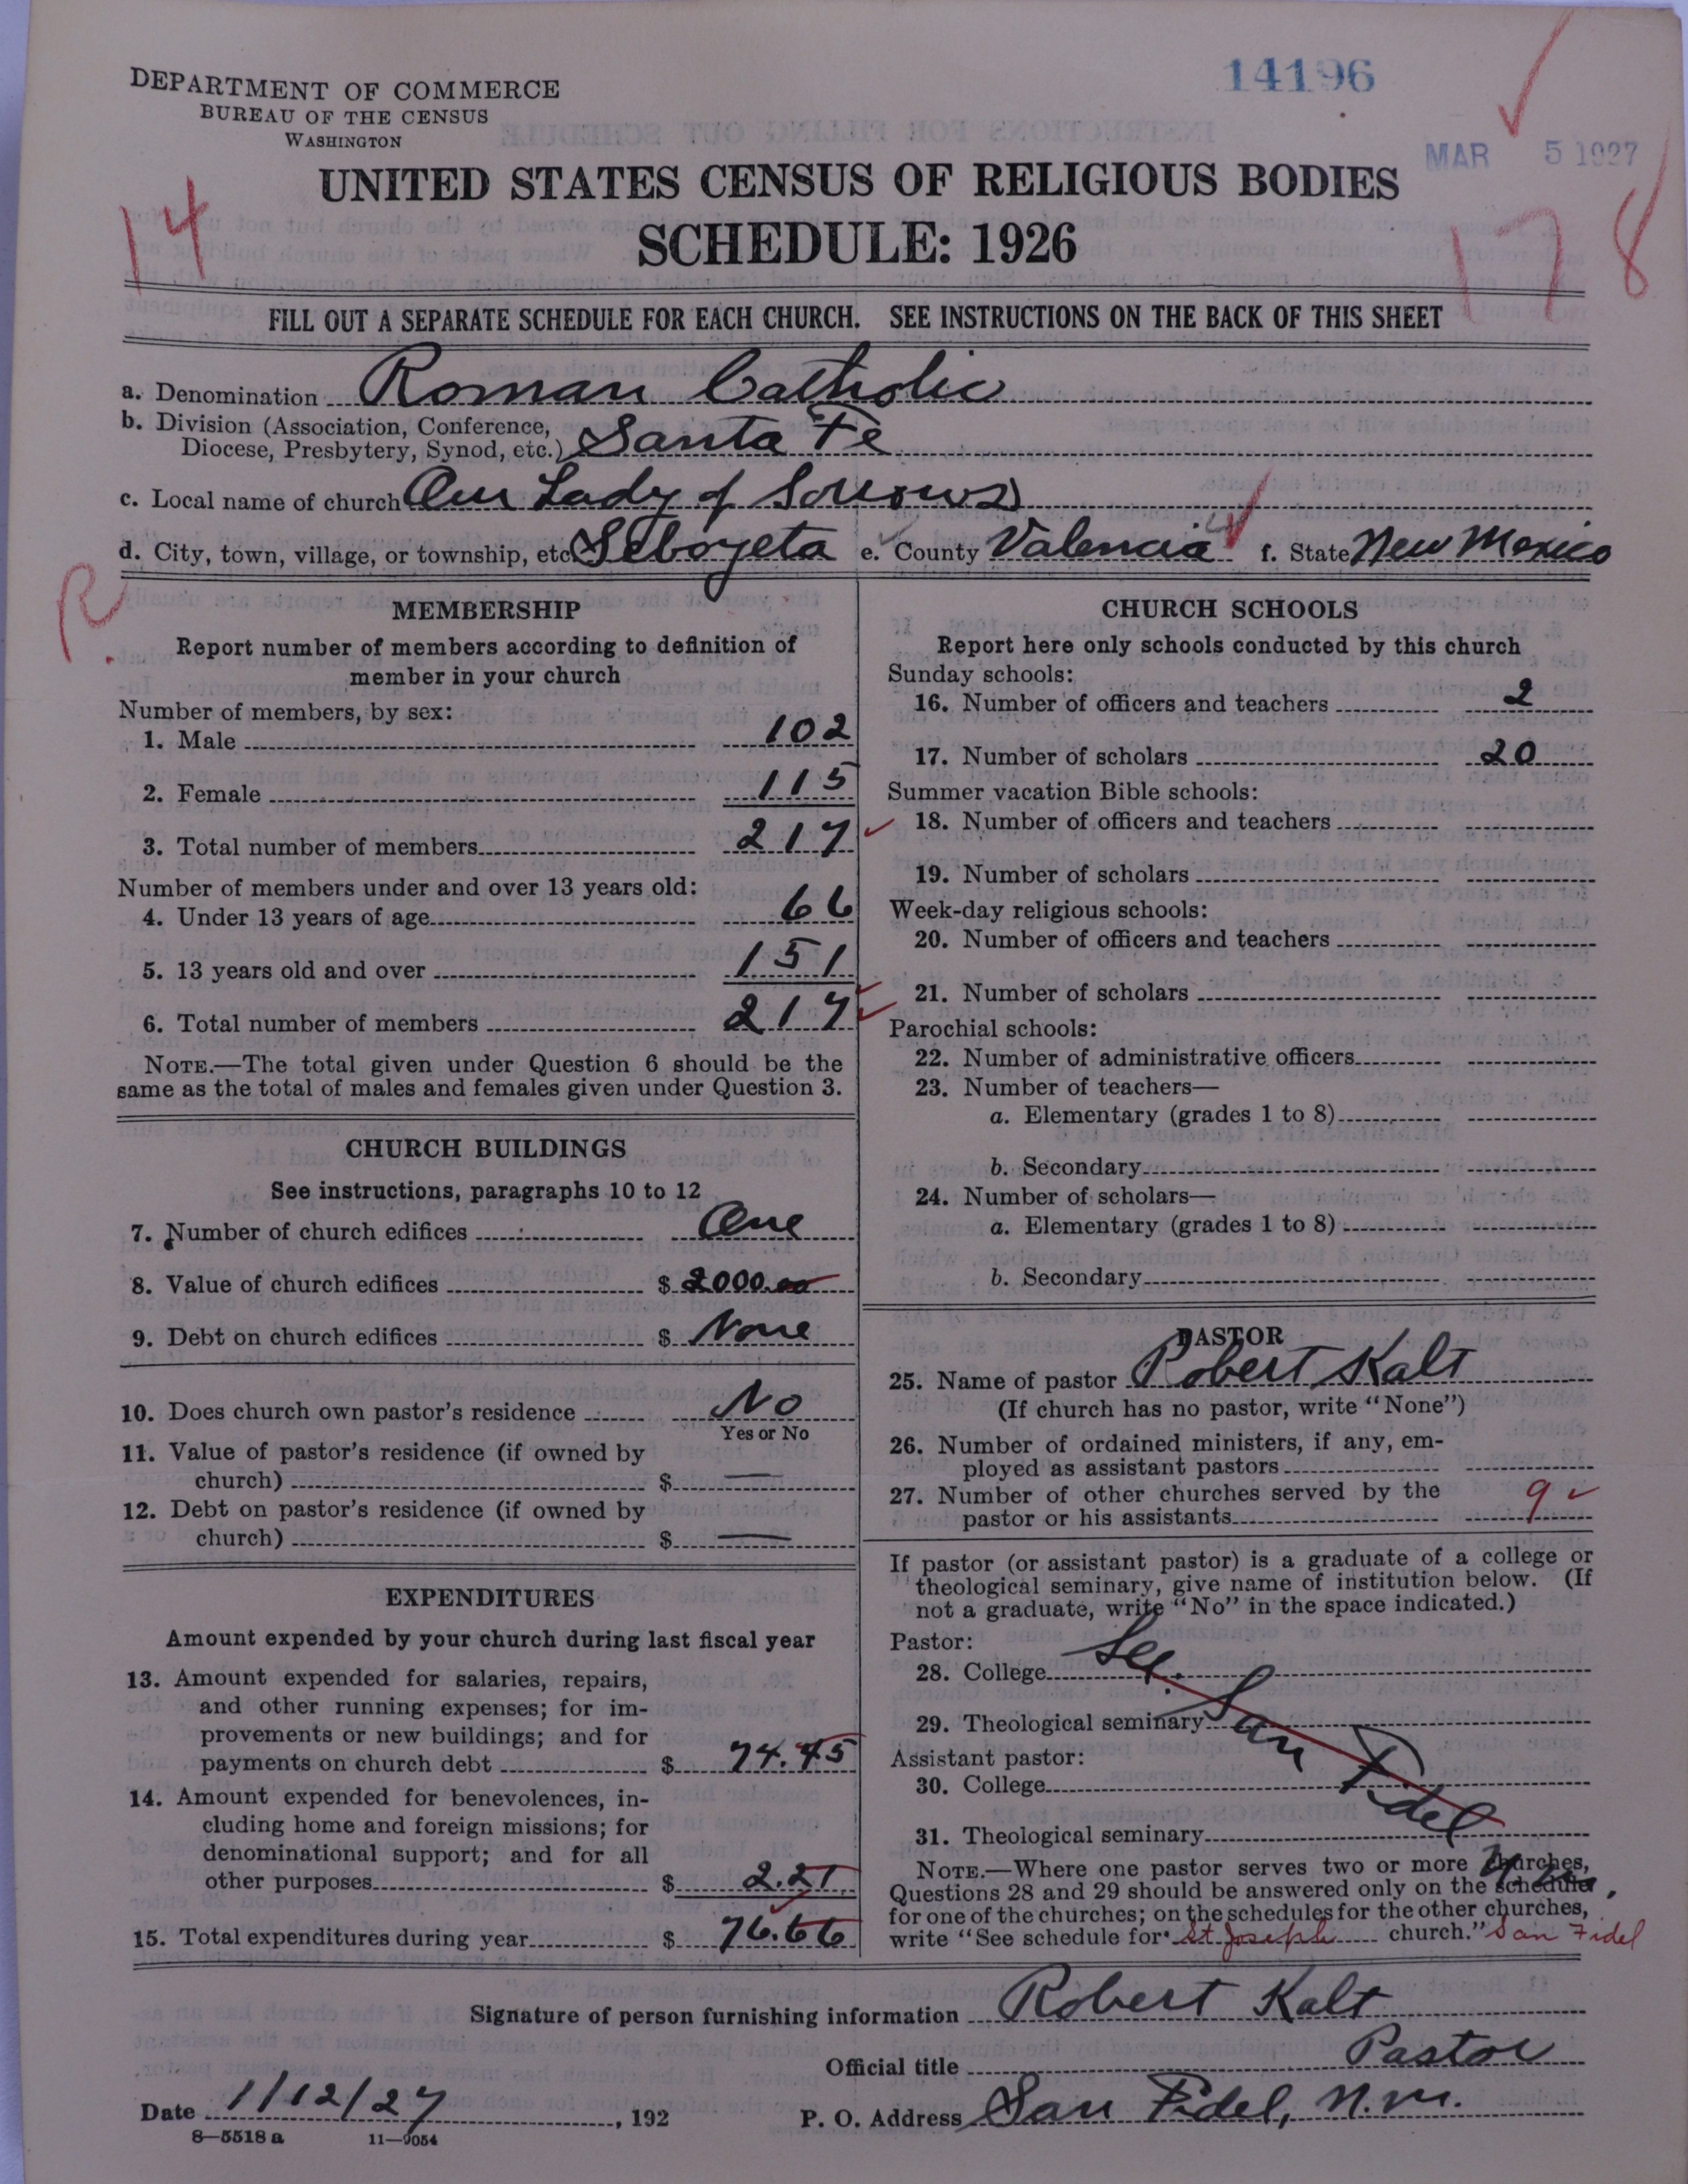 14196
DEPARTMENT OF COMMERCE
BUREAU OF THE CENSUS
WASHINGTON
MAR 5 1927
UNITED STATES CENSUS OF RELIGIOUS BODIES
14
SCHEDULE: 1926
178
FILL OUT A SEPARATE SCHEDULE FOR EACH CHURCH. SEE INSTRUCTIONS ON THE BACK OF THIS SHEET
a. Denomination Roman Catholic
b. Division (Association, Conference,
Diocese, Presbytery, Synod, etc.) Santa Fe
c. Local name of church Our Lady of Sorrows
d. City, town, village, or township, etc. Seboyeta e. County Valencia f. State New Mexico
R.
MEMBERSHIP
Report number of members according to definition of
member in your church
Number of members, by sex:
1. Male 102
2. Female 115
3. Total number of members 217
Number of members under and over 13 years old:
4. Under 13 years of age 66
5. 13 years old and over 151
6. Total number of members 217
NOTE.—The total given under Question 6 should be the
same as the total of males and females given under Question 3.
CHURCH BUILDINGS
See instructions, paragraphs 10 to 12
7. Number of church edifices One
8. Value of church edifices $ 2000.00
9. Debt on church edifices $ None
10. Does church own pastor's residence No
Yes or No
11. Value of pastor's residence (if owned by
church) $ —
12. Debt on pastor's residence (if owned by
church) $ —
EXPENDITURES
Amount expended by your church during last fiscal year
13. Amount expended for salaries, repairs,
and other running expenses; for im-
provements or new buildings; and for
payments on church debt $ 74.45
14. Amount expended for benevolences, in-
cluding home and foreign missions; for
denominational support; and for all
other purposes $ 2.21
15. Total expenditures during year $ 76.66
CHURCH SCHOOLS
Report here only schools conducted by this church
Sunday schools:
16. Number of officers and teachers 2
17. Number of scholars 20
Summer vacation Bible schools:
18. Number of officers and teachers
19. Number of scholars
Week-day religious schools:
20. Number of officers and teachers
21. Number of scholars
Parochial schools:
22. Number of administrative officers
23. Number of teachers—
a. Elementary (grades 1 to 8)
b. Secondary
24. Number of scholars—
a. Elementary (grades 1 to 8)
b. Secondary
PASTOR
25. Name of pastor Robert Kalt
(If church has no pastor, write "None")
26. Number of ordained ministers, if any, em-
ployed as assistant pastors
27. Number of other churches served by the
pastor or his assistants 9
If pastor (or assistant pastor) is a graduate of a college or
theological seminary, give name of institution below. (If
not a graduate, write "No" in the space indicated.)
Pastor:
28. College See
29. Theological seminary San
Assistant pastor:
30. College Fidel
31. Theological seminary
NOTE.—Where one pastor serves two or more churches,
Questions 28 and 29 should be answered only on the schedule
for one of the churches; on the schedules for the other churches,
write "See schedule for St Joseph church." San Fidel
Signature of person furnishing information Robert Kalt
Official title Pastor
Date 1/12/27, 192 P. O. Address San Fidel, N.M.
8—5518 a 11—9054